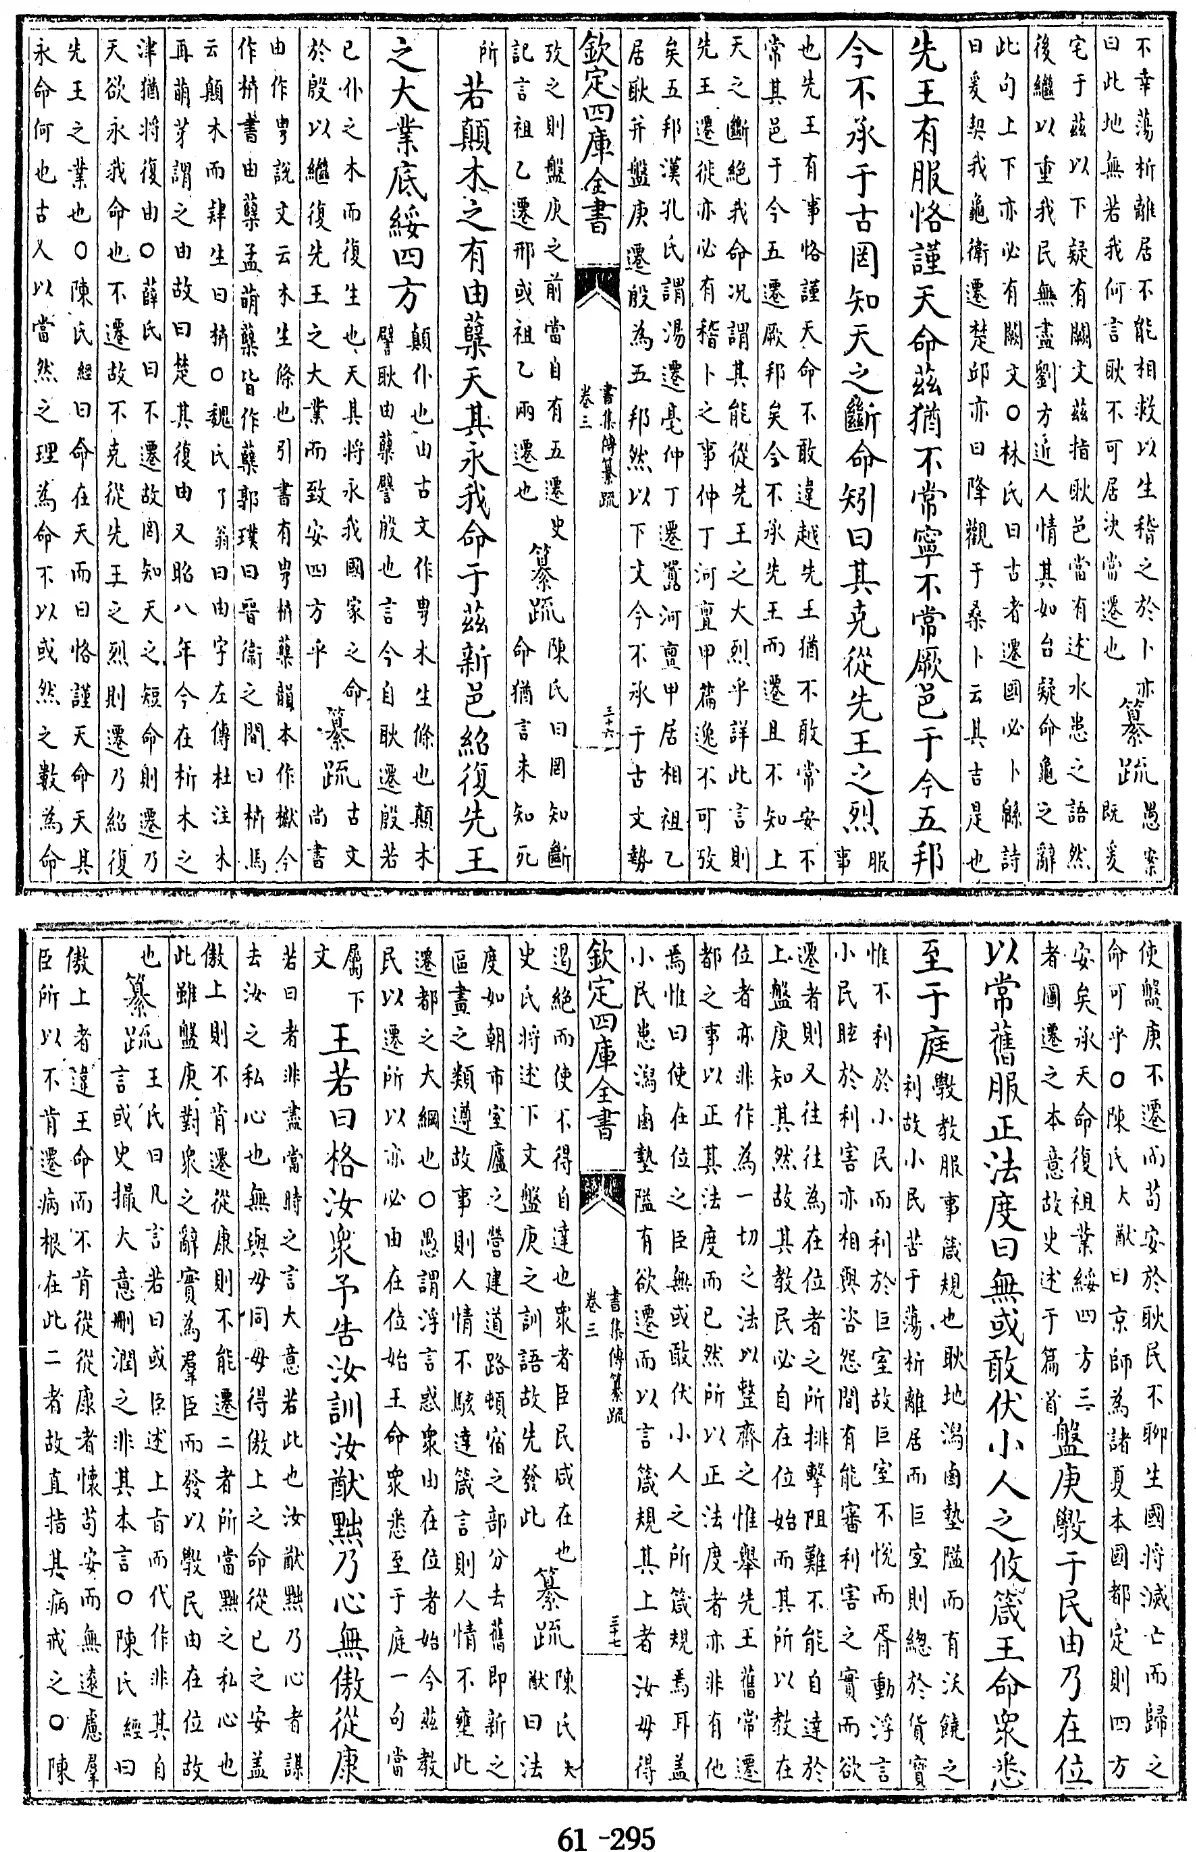 不幸蕩析離居不能相救以生稽之於卜亦
曰此地無若我何言耿不可居決當遷也
纂疏
愚案
既爰
宅于茲以下疑有闕文茲指耿邑當有述水患之語然
後繼以重我民無盡劉方近人情其如台疑命龜之辭
此句上下亦必有闕文〇林氏曰古者遷國必卜緜詩
曰爰契我龜衛遷楚邱亦曰降觀于桑卜云其吉是也
先王有服恪謹天命茲猶不常寧不常厥邑于今五邦
今不承于古罔知天之斷命矧曰其克從先王之烈
服
事
也先王有事恪謹天命不敢違越先王猶不敢常安不
常其邑于今五遷厥邦矣今不承先王而遷且不知上
天之斷絕我命况謂其能從先王之大烈乎詳此言則
先王遷徙亦必有稽卜之事仲丁河亶甲篇逸不可攷
矣五邦漢孔氏謂湯遷亳仲丁遷囂河亶甲居相祖乙
居耿并盤庚遷殷為五邦然以下文今不承于古文勢
欽定四庫全書
書集傳纂疏
卷三
三十六
攷之則盤庚之前當自有五遷史
記言祖乙遷邢或祖乙兩遷也
纂疏
陳氏曰罔知斷
命猶言未知死
所
若顛木之有由蘖天其永我命于茲新邑紹復先王
之大業底綏四方
顛仆也由古文作㽕木生條也顛木
譬耿由蘖譬殷也言今自耿遷殷若
已仆之木而復生也天其將永我國家之命
於殷以繼復先王之大業而致安四方乎
纂疏
古文
尚書
由作㽕說文云木生條也引書有㽕枿蘖韻本作櫱今
作枿書由蘖孟萌蘖皆作蘖郭璞曰晉衞之間曰枿馬
云顛木而肄生曰枿〇魏氏了翁曰由字左傳杜注木
再萌芽謂之由故曰楚其復由又昭八年今在析木之
津猶將復由〇薛氏曰不遷故罔知天之短命則遷乃
天欲永我命也不遷故不克從先王之烈則遷乃紹復
先王之業也〇陳氏經曰命在天而曰恪謹天命天其
永命何也古人以當然之理為命不以或然之數為命
使盤庚不遷而苟安於耿民不聊生國將滅亡而歸之
命可乎〇陳氏大猷曰京師為諸夏本國都定則四方
安矣承天命復祖業綏四方三
者圖遷之本意故史述于篇首
盤庚斆于民由乃在位
以常舊服正法度曰無或敢伏小人之攸箴王命衆悉
至于庭
斆教服事箴規也耿地潟鹵墊隘而有沃饒之
利故小民苦于蕩析離居而巨室則總於貨寶
惟不利於小民而利於巨室故巨室不悅而胥動浮言
小民眩於利害亦相與咨怨間有能審利害之實而欲
遷者則又往往為在位者之所排擊阻難不能自達於
上盤庚知其然故其教民必自在位始而其所以教在
位者亦非作為一切之法以整齊之惟舉先王舊常遷
都之事以正其法度而已然所以正法度者亦非有他
焉惟曰使在位之臣無或敢伏小人之所箴規焉耳蓋
小民患潟鹵墊隘有欲遷而以言箴規其上者汝毋得
欽定四庫全書
書集傳纂疏
卷三
三十七
遏絕而使不得自達也衆者臣民咸在也
史氏將述下文盤庚之訓語故先發此
纂疏
陳氏大
猷曰法
度如朝市室廬之營建道路頓宿之部分去舊即新之
區畫之類遵故事則人情不駭達箴言則人情不壅此
遷都之大綱也〇愚謂浮言惑衆由在位者始今茲教
民以遷所以亦必由在位始王命衆悉至于庭一句當
屬下
文
王若曰格汝衆予告汝訓汝猷黜乃心無傲從康
若曰者非盡當時之言大意若此也汝猷黜乃心者謀
去汝之私心也無與毋同毋得傲上之命從已之安蓋
傲上則不肯遷從康則不能遷二者所當黜之私心也
此雖盤庚對衆之辭實為羣臣而發以斆民由在位故
也
纂疏
王氏曰凡言若曰或臣述上旨而代作非其自
言或史撮大意刪潤之非其本言〇陳氏經曰
傲上者違王命而不肯從從康者懷苟安而無遠慮羣
臣所以不肯遷病根在此二者故直指其病戒之〇陳
61-295